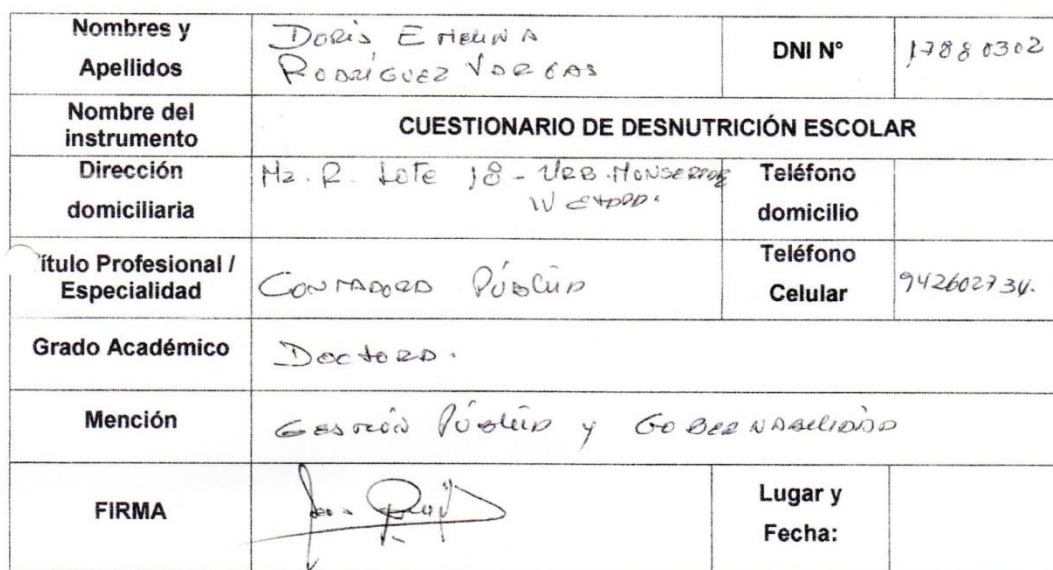 Nombres y Apellidos
DORIS EMELINA
RODRÍGUEZ VARGAS
DNI N°
17880302
Nombre del instrumento
CUESTIONARIO DE DESNUTRICIÓN ESCOLAR
Dirección domiciliaria
Mz. R. LOTE 18 - URB. MONSERRATE
IV ETAPA.
Teléfono domicilio
ítulo Profesional / Especialidad
CONTADORA PÚBLICA
Teléfono Celular
942602734.
Grado Académico
DOCTORA.
Mención
GESTIÓN PÚBLICA y GOBERNABILIDAD
FIRMA
Lugar y Fecha: